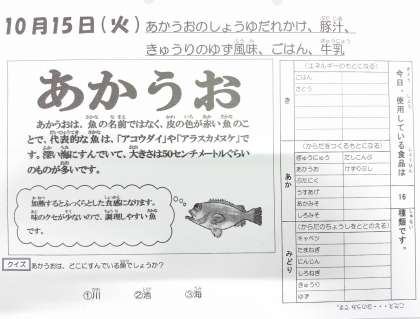 10月15日(火) あかうおのしょうゆだれかけ、豚汁、
きゅうりのゆず風味、ごはん、牛乳
あかうお
あかうおは、魚の名前ではなく、皮の色が赤い魚のこ
とで、代表的な魚は、「アコウダイ」や「アラスカメヌケ」で
す。深い海にすんでいて、大きさは50センチメートルぐらい
のものが多いです。
加熱するとふっくらとした食感になります。
味のクセが少ないので、調理しやすい魚
です。
クイズ あかうおは、どこにすんでいる魚でしょうか?
①川 ②池 ③海
今日、使用している食品は
16
種類です。
き
(エネルギーのもとになる)
ごはん
さとう
あか
(からだをつくるもとになる)
ぎゅうにゅう だしこんぶ
あかうお けずりぶし
ぶたにく
うすあげ
あかみそ
しろみそ
みどり
(からだのちょうしをととのえる)
キャベツ
たまねぎ
にんじん
しろねぎ
きゅうり
ゆず